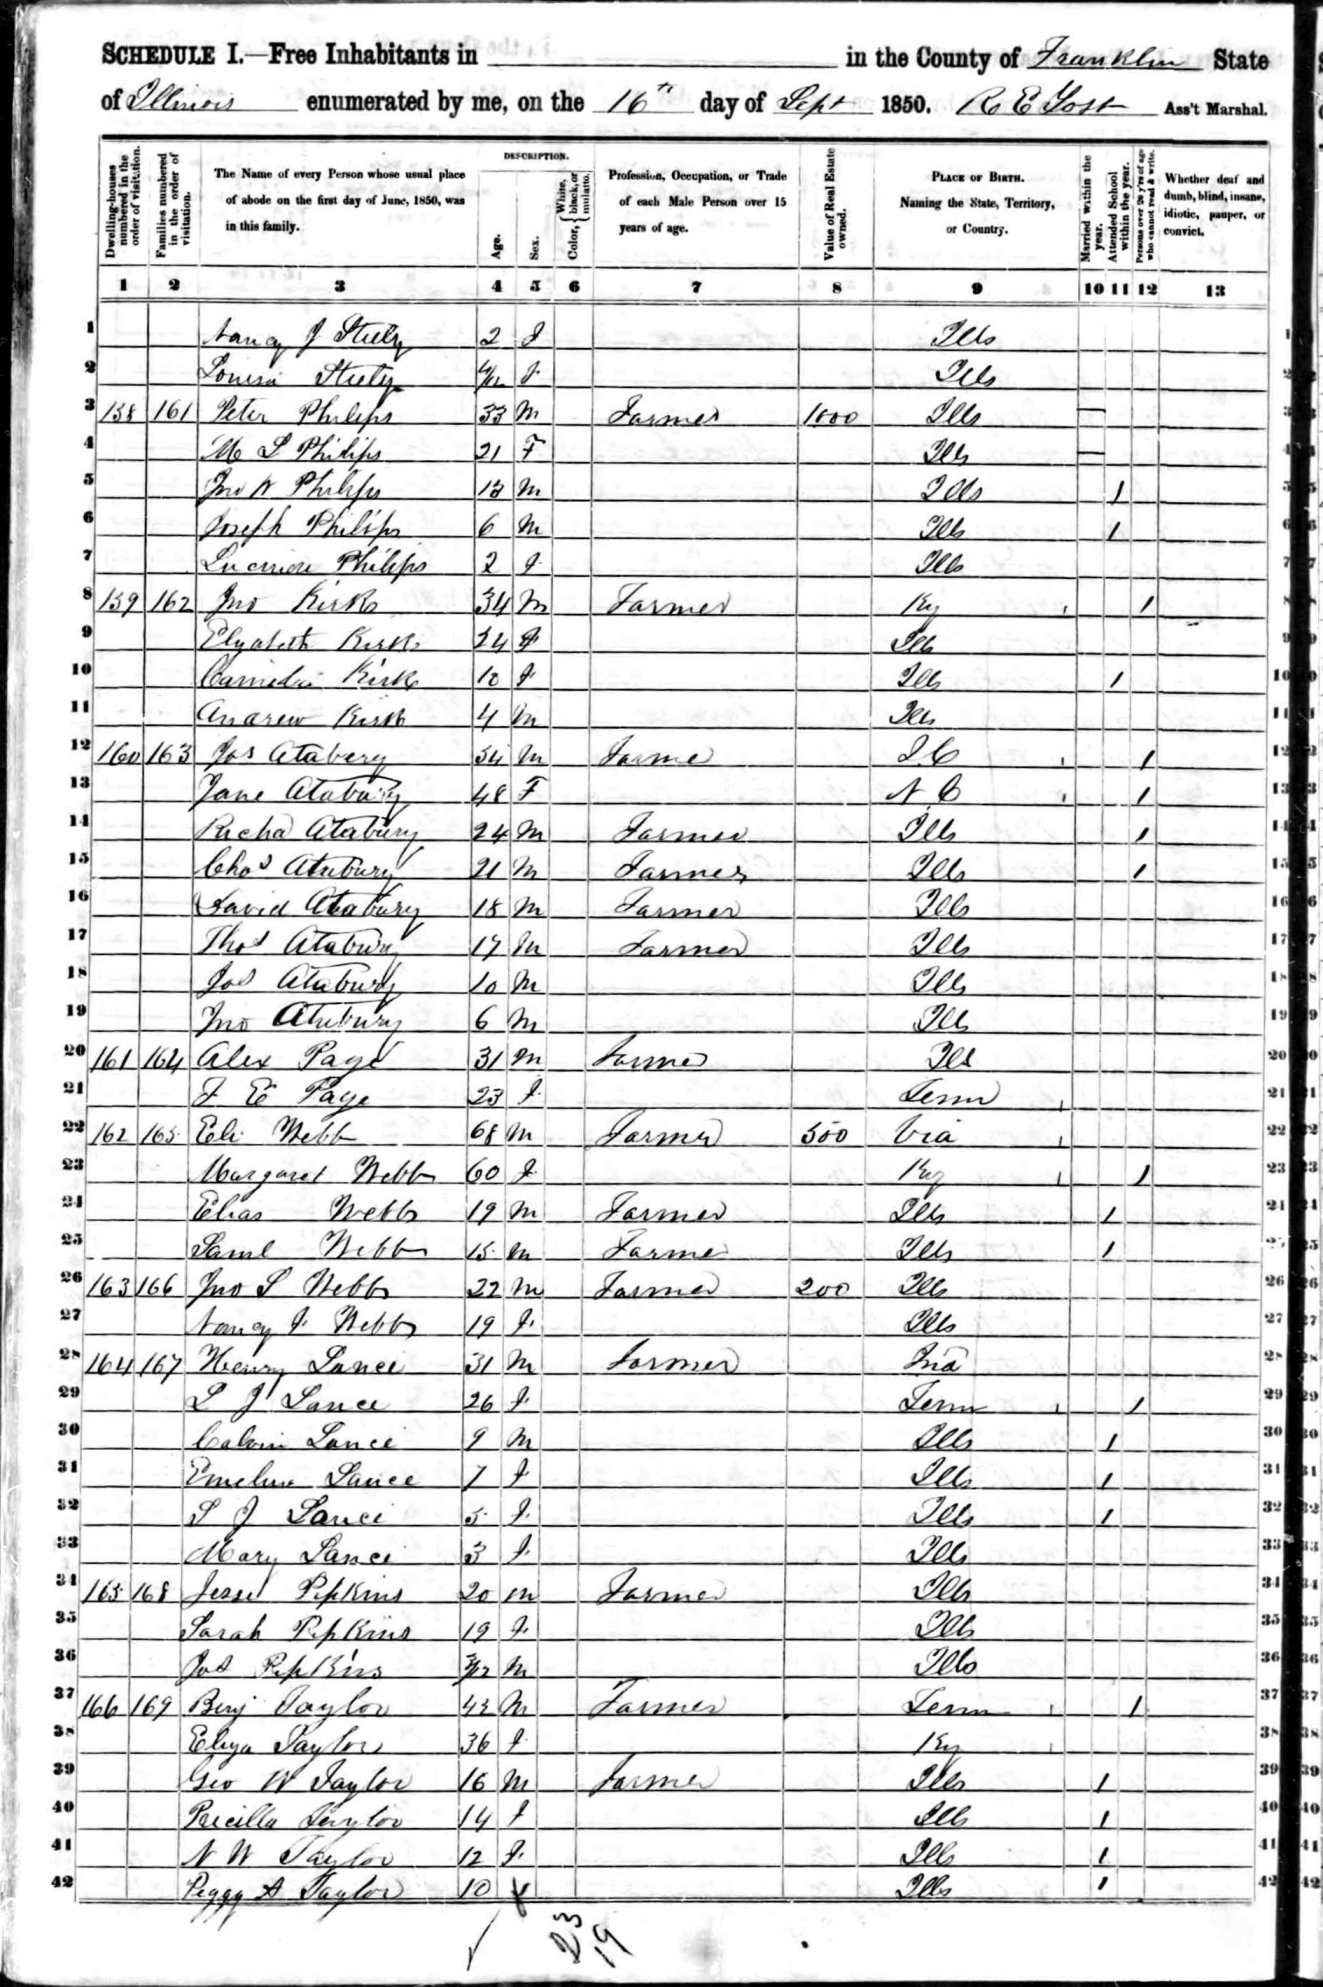 SCHEDULE I.—Free Inhabitants in in the County of Franklin State
of Illinois enumerated by me, on the 16th day of Sept 1850. R E Yost Ass't Marshal.
Dwelling-houses numbered in the order of visitation.
Families numbered in the order of visitation.
The Name of every Person whose usual place of abode on the first day of June, 1850, was in this family.
DESCRIPTION.
Age.
Sex.
Color, White, black, or mulatto.
Profession, Occupation, or Trade of each Male Person over 15 years of age.
Value of Real Estate owned.
PLACE OF BIRTH. Naming the State, Territory, or Country.
Married within the year.
Attended School within the year.
Persons over 20 y'rs of age who cannot read & write.
Whether deaf and dumb, blind, insane, idiotic, pauper, or convict.
1 2 3 4 5 6 7 8 9 10 11 12 13
1 Nancy J Steely 2 F Ills 1
2 Louisa Steely 4/12 F Ills 2
3 158 161 Peter Philips 33 M Farmer 1000 Ills — 3
4 M L Philips 21 F Ills — 4
5 Jno Philips 12 M Ills / 5
6 Joseph Philips 6 M Ills / 6
7 Philips 2 F Ills 7
8 159 162 Jno Kirk 34 M Farmer Ky / 8
9 Elizabeth Kirk 34 F Ills 9
10 Kirk 10 F Ills / 10
11 Andrew Kirk 4 M Ills 11
12 160 163 Jos Atabery 54 M Farmer S C / 12
13 Jane Atabury 48 F N C / 13
14 Richd Atabury 24 M Farmer Ills / 14
15 Chos Atabury 21 M Farmer Ills / 15
16 David Atabury 18 M Farmer Ills 16
17 Thos Atabury 17 M Farmer Ills 17
18 Jos Atabury 10 M Ills 18
19 Jno Atabury 6 M Ills 19
20 161 164 Alex Page 31 M Farmer Ills 20
21 F E Page 23 F Tenn 21
22 162 165 Eli Webb 68 M Farmer 500 Via 22
23 Margaret Webb 60 F Ky / 23
24 Elias Webb 19 M Farmer Ills / 24
25 Saml Webb 15 M Farmer Ills / 25
26 163 166 Jno S Webb 22 M Farmer 200 Ills 26
27 Nancy J Webb 19 F Ills 27
28 164 167 Henry Lance 31 M Farmer Ind 28
29 L J Lance 26 F Tenn / 29
30 Calvin Lance 9 M Ills / 30
31 Emeline Lance 7 F Ills / 31
32 S J Lance 5 F Ills / 32
33 Mary Lance 3 F Ills 33
34 165 168 Jesse Pipkins 20 M Farmer Ills 34
35 Sarah Pipkins 19 F Ills 35
36 Jos Pipkins 3/12 M Ills 36
37 166 169 Benj Taylor 42 M Farmer Tenn / 37
38 Eliza Taylor 36 F Ky 38
39 Geo W Taylor 16 M Farmer Ills / 39
40 Pricilla Taylor 14 F Ills / 40
41 N W Taylor 12 F Ills / 41
42 Peggy A Taylor 10 F Ills / 42
23
19